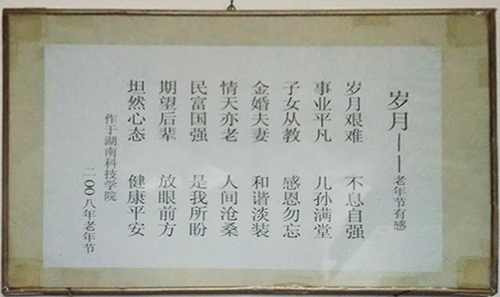 岁月——老年节有感
岁月艰难 不息自强
事业平凡 儿孙满堂
子女从教 感恩勿忘
金婚夫妻 和谐淡装
情天亦老 人间沧桑
民富国强 是我所盼
期望后辈 放眼前方
坦然心态 健康平安
作于湖南科技学院
二〇〇八年老年节